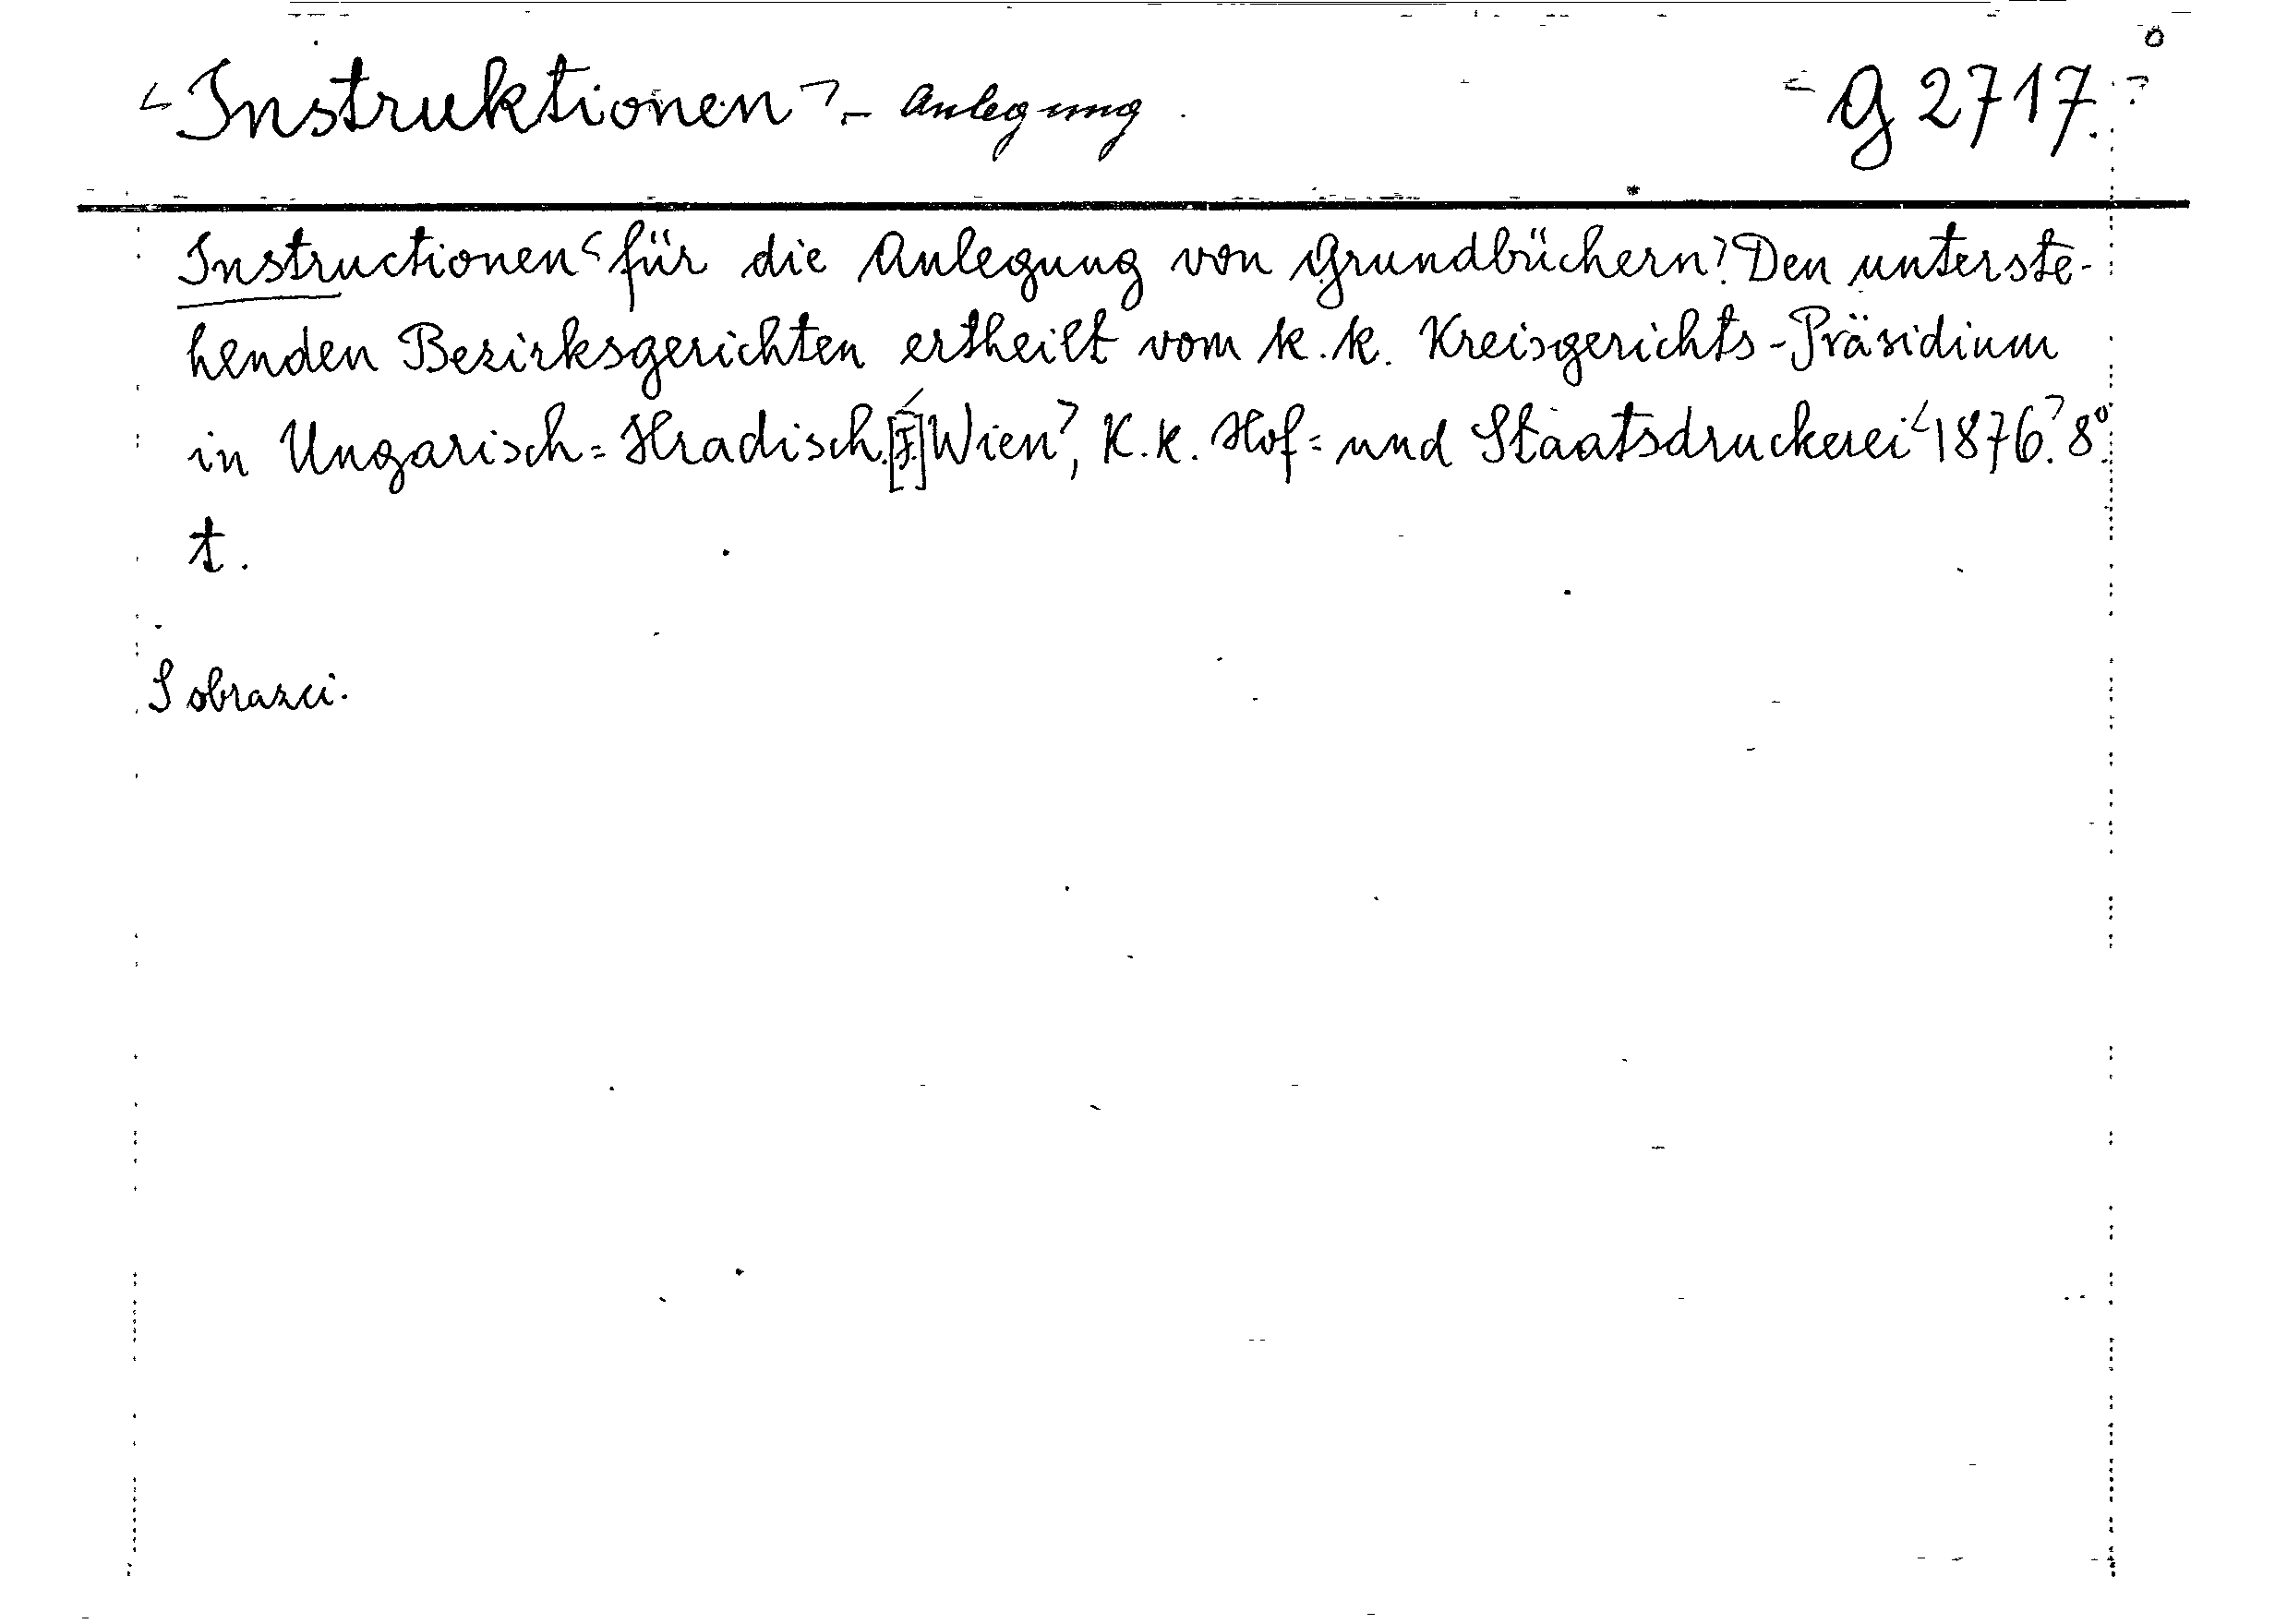 Instruktionen - Anlegung G 2717.
Instructionen für die Anlegung von Grundbüchern. Den unterste-
henden Bezirksgerichten ertheilt vom k. k. Kreisgerichts-Präsidium
in Ungarisch=Hradisch. Wien, K. k. Hof= und Staatsdruckerei 1876. 8°.
t.
S obrazci.